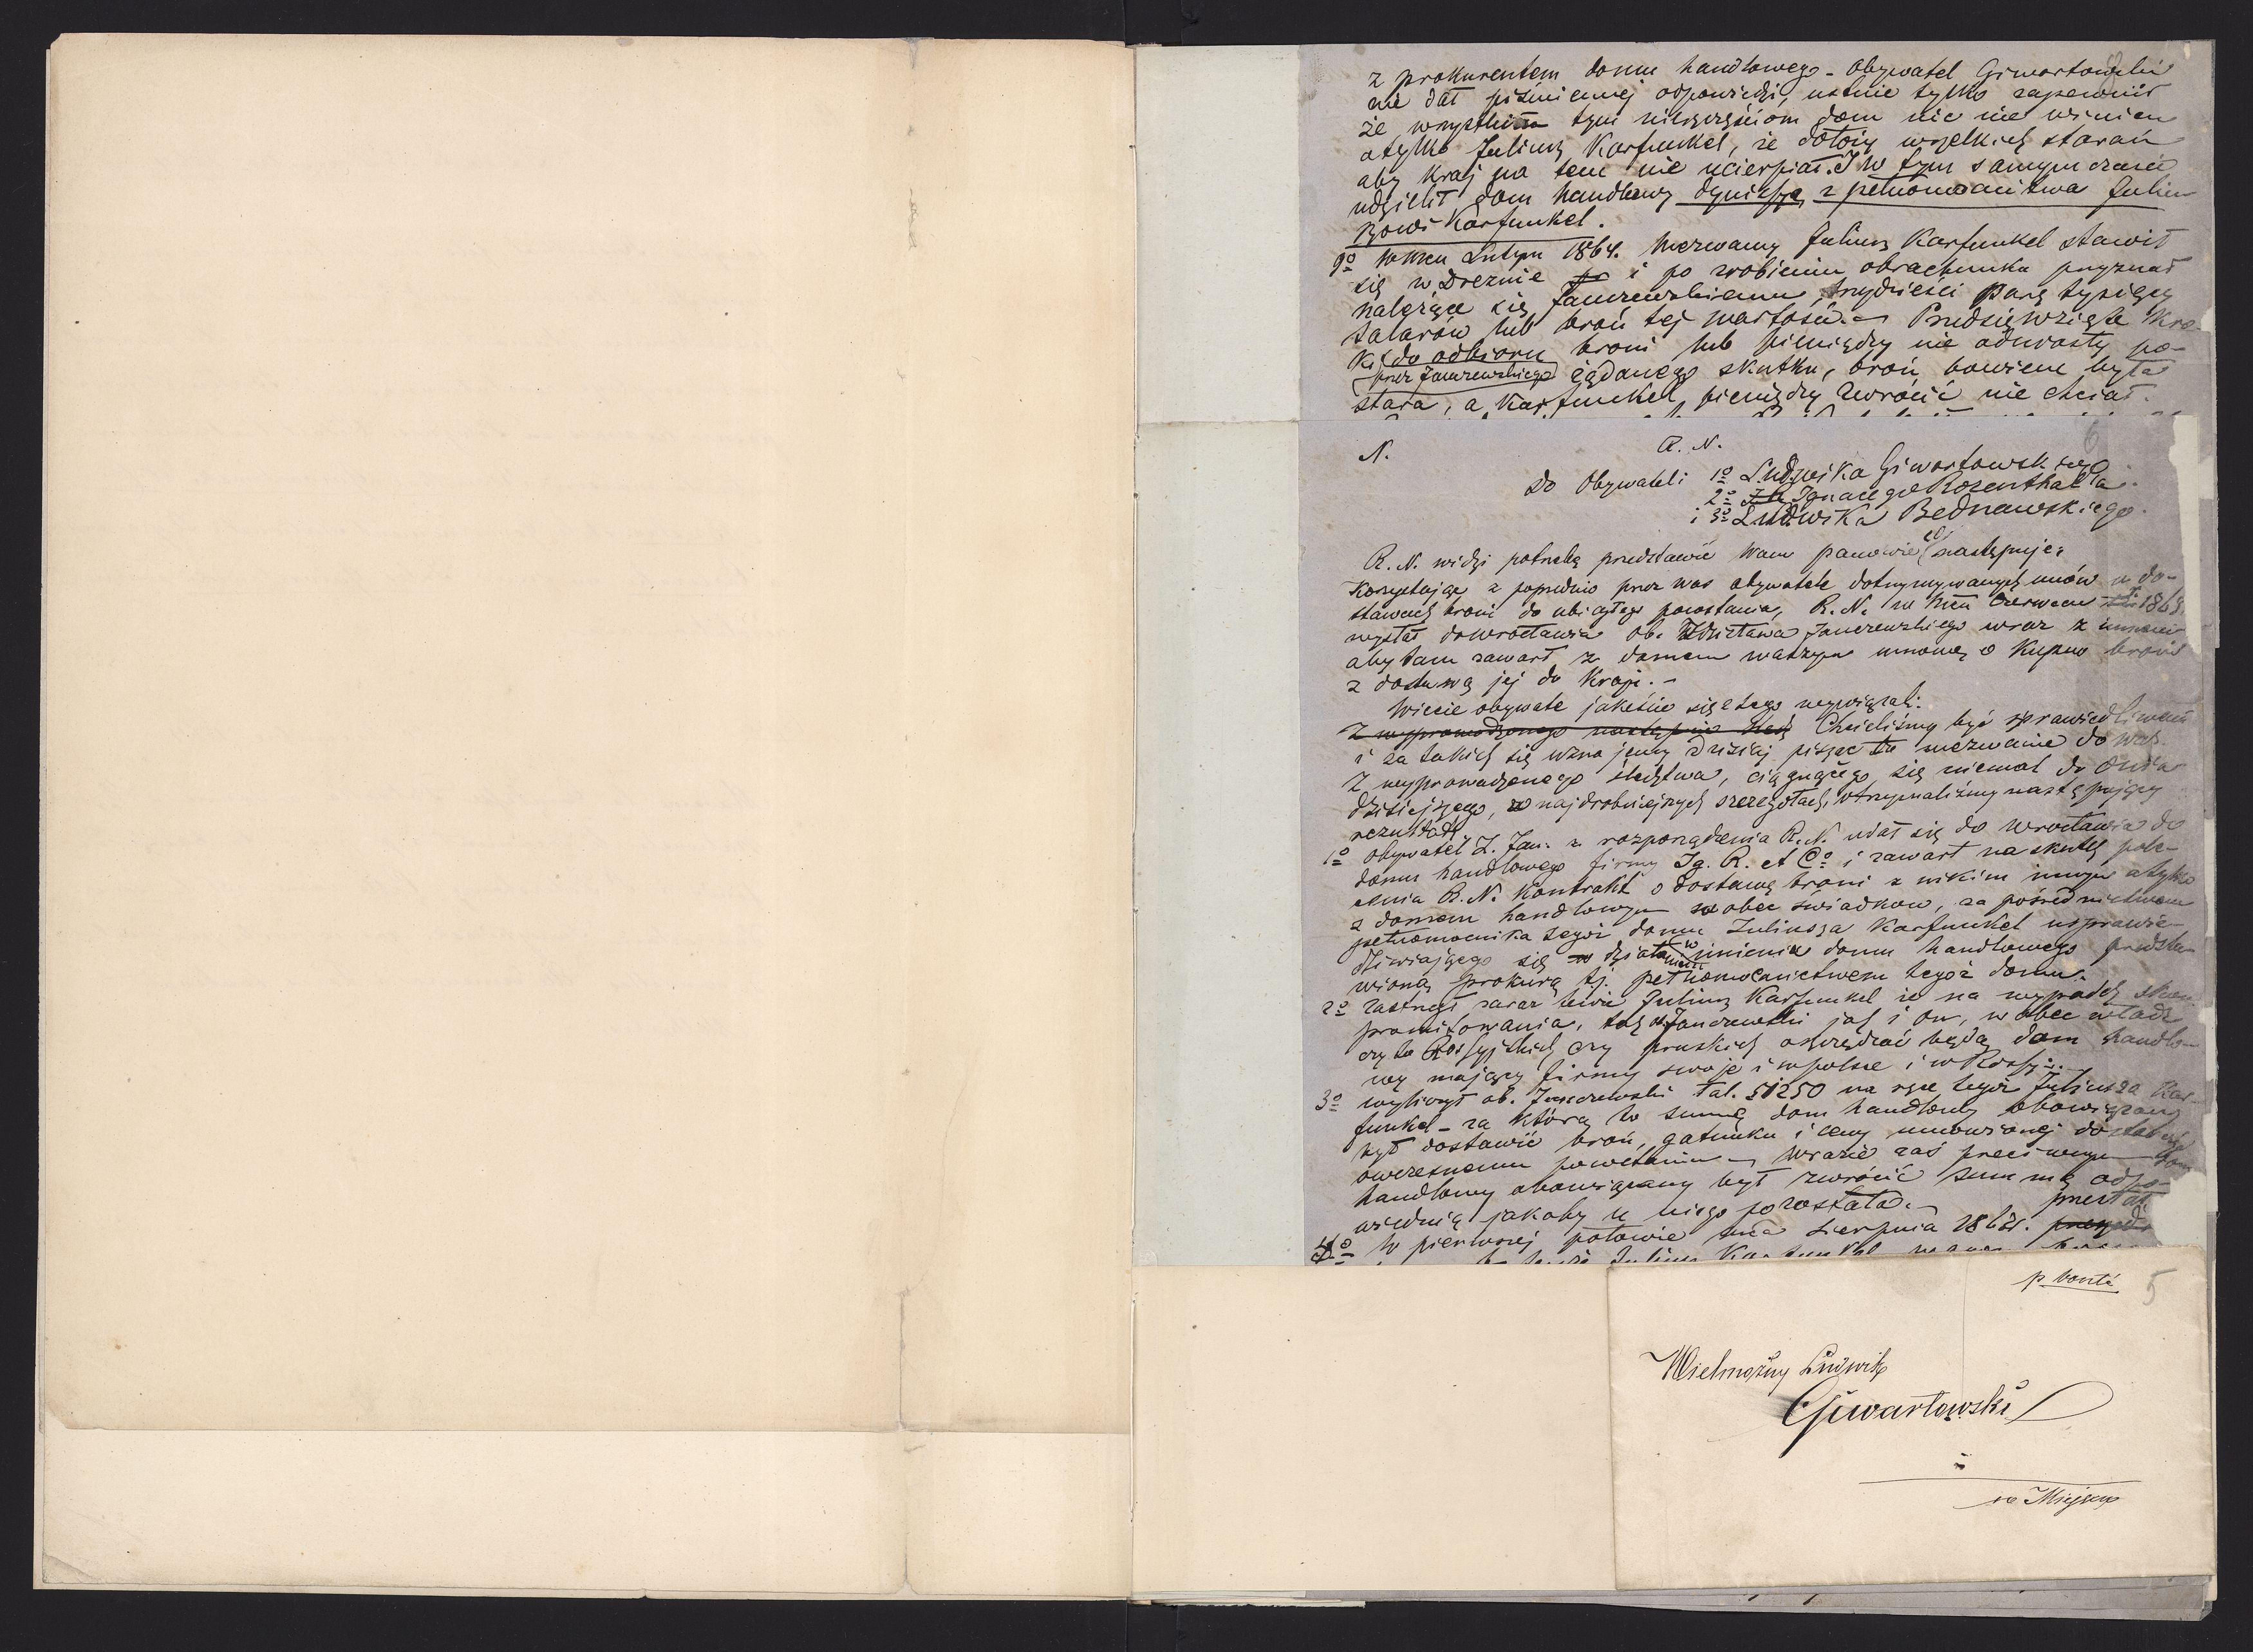 z prokurentem domu handlowego - Obywatel Giwartowski
nie dał piśmiennej odpowiedzi, ustnie tylko zapewnił
że wszystkim tym nieszczęściom dom nic nie winien
a tylko Juliusz Karfunkel, że dołoży wszelkich starań
aby kraj na tem nie ucierpiał. I w tym samym czasie
udzielił dom handlowy dymisję z pełnomocnictwa Juliu-
szowi Karfunkel.
9o w mcu Lutym 1864. wezwany Juliusz Karfunkel stawił
się w Dreznie i po zrobieniu obrachunku przyznał
należące się Janczewskiemu, trzydzieści parę tysięcy
talarów lub broń tej wartości. - Przedsięwzięte kro-
ki do odbioru broni lub pieniędzy nie odniosły po-
przez Janczewskiego żądanego skutku, broń bowiem była
stara, a Karfunkel pieniędzy zwrócić nie chciał.
6
N. R. N.
Do Obywateli 1o Ludwika Giwartowskiego
2o Ignacego Rosenthala
i 3o Ludwika Bednawskiego.
R. N. widzi potrzebę przedstawić wam panowie co następuje:
Korzystając z poprzednio przez was obywatele dotrzymywanych umów o do-
stawach broni do ubiegłego powstania, R. N. w mcu Czerwcu 1863.
wysłał do Wrocławia ob. Zdzisława Janczewskiego wraz z innemi
aby tam zawarł z domem waszym umowę o kupno broni
z dostawą jej do kraju. -
Wiecie obywatele jakeście się z tego wywiązali.
Z wyprowadzonego następnie Chcieliśmy być sprawiedliwemi
i za takich się uznajemy dzisiaj pisząc to wezwanie do was.
Z wyprowadzonego śledztwa, ciągnącego się niemal do dnia
dzisiejszego, w najdrobniejszych szczegółach, otrzymaliśmy następujący
rezultat
1o obywatel Z. Jan. z rozporządzenia R. N. udał się do Wrocławia do
domu handlowego firmy Ig. R. et Co i zawarł na skutek pole-
cenia R. N. kontrakt o dostawę broni z nikim innym a tylko
z domem handlowym wobec świadków, za pośrednictwem
pełnomocnika tegoż domu Juliusza Karfunkel usprawie-
dliwiającego się w działaniu w imieniu domu handlowego przedsta-
wioną prokurą tj. pełnomocnictwem tegoż domu.
2o zastrzegł zaraz tenże Juliusz Karfunkel że na wypadek skom-
promitowania, tak ob. Janczewski jak i on, wobec władz
czy to Rossyjskich czy pruskich oszczędzać będą dom handlo-
wy mający firmy swoje i w polsce i w Rossyi. -
3o wyliczył ob. Janczewski tal. 51250 na ręce tegoż Juliusza Kar-
funkel - za którą to summę dom handlowy obowiązany
był dostawić broń, gatunku i ceny umówionej
ówczesnemu powstaniu - w razie zaś przeciwnym dom
handlowy obowiązany był zwrócić summę odpo-
wiednią jakaby u niego pozostała. -
4o w pierwszej połowie mca Sierpnia 1863r. przestał
p. bonté 5
Wielmożny Ludwik
Giwartowski
w Miejscu